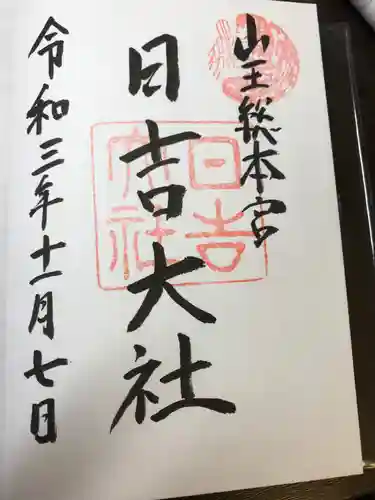 山王総本宮
日吉大社
令和三年十一月七日
日吉大社